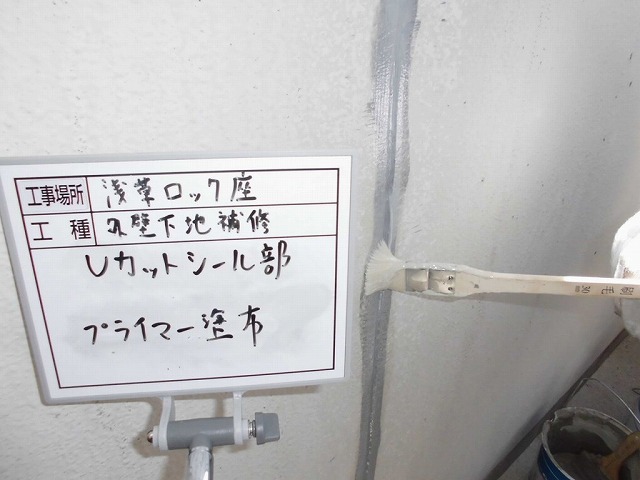 工事場所 浅草ロック座
工種 外壁下地補修
Uカットシール部
プライマー塗布
刷毛